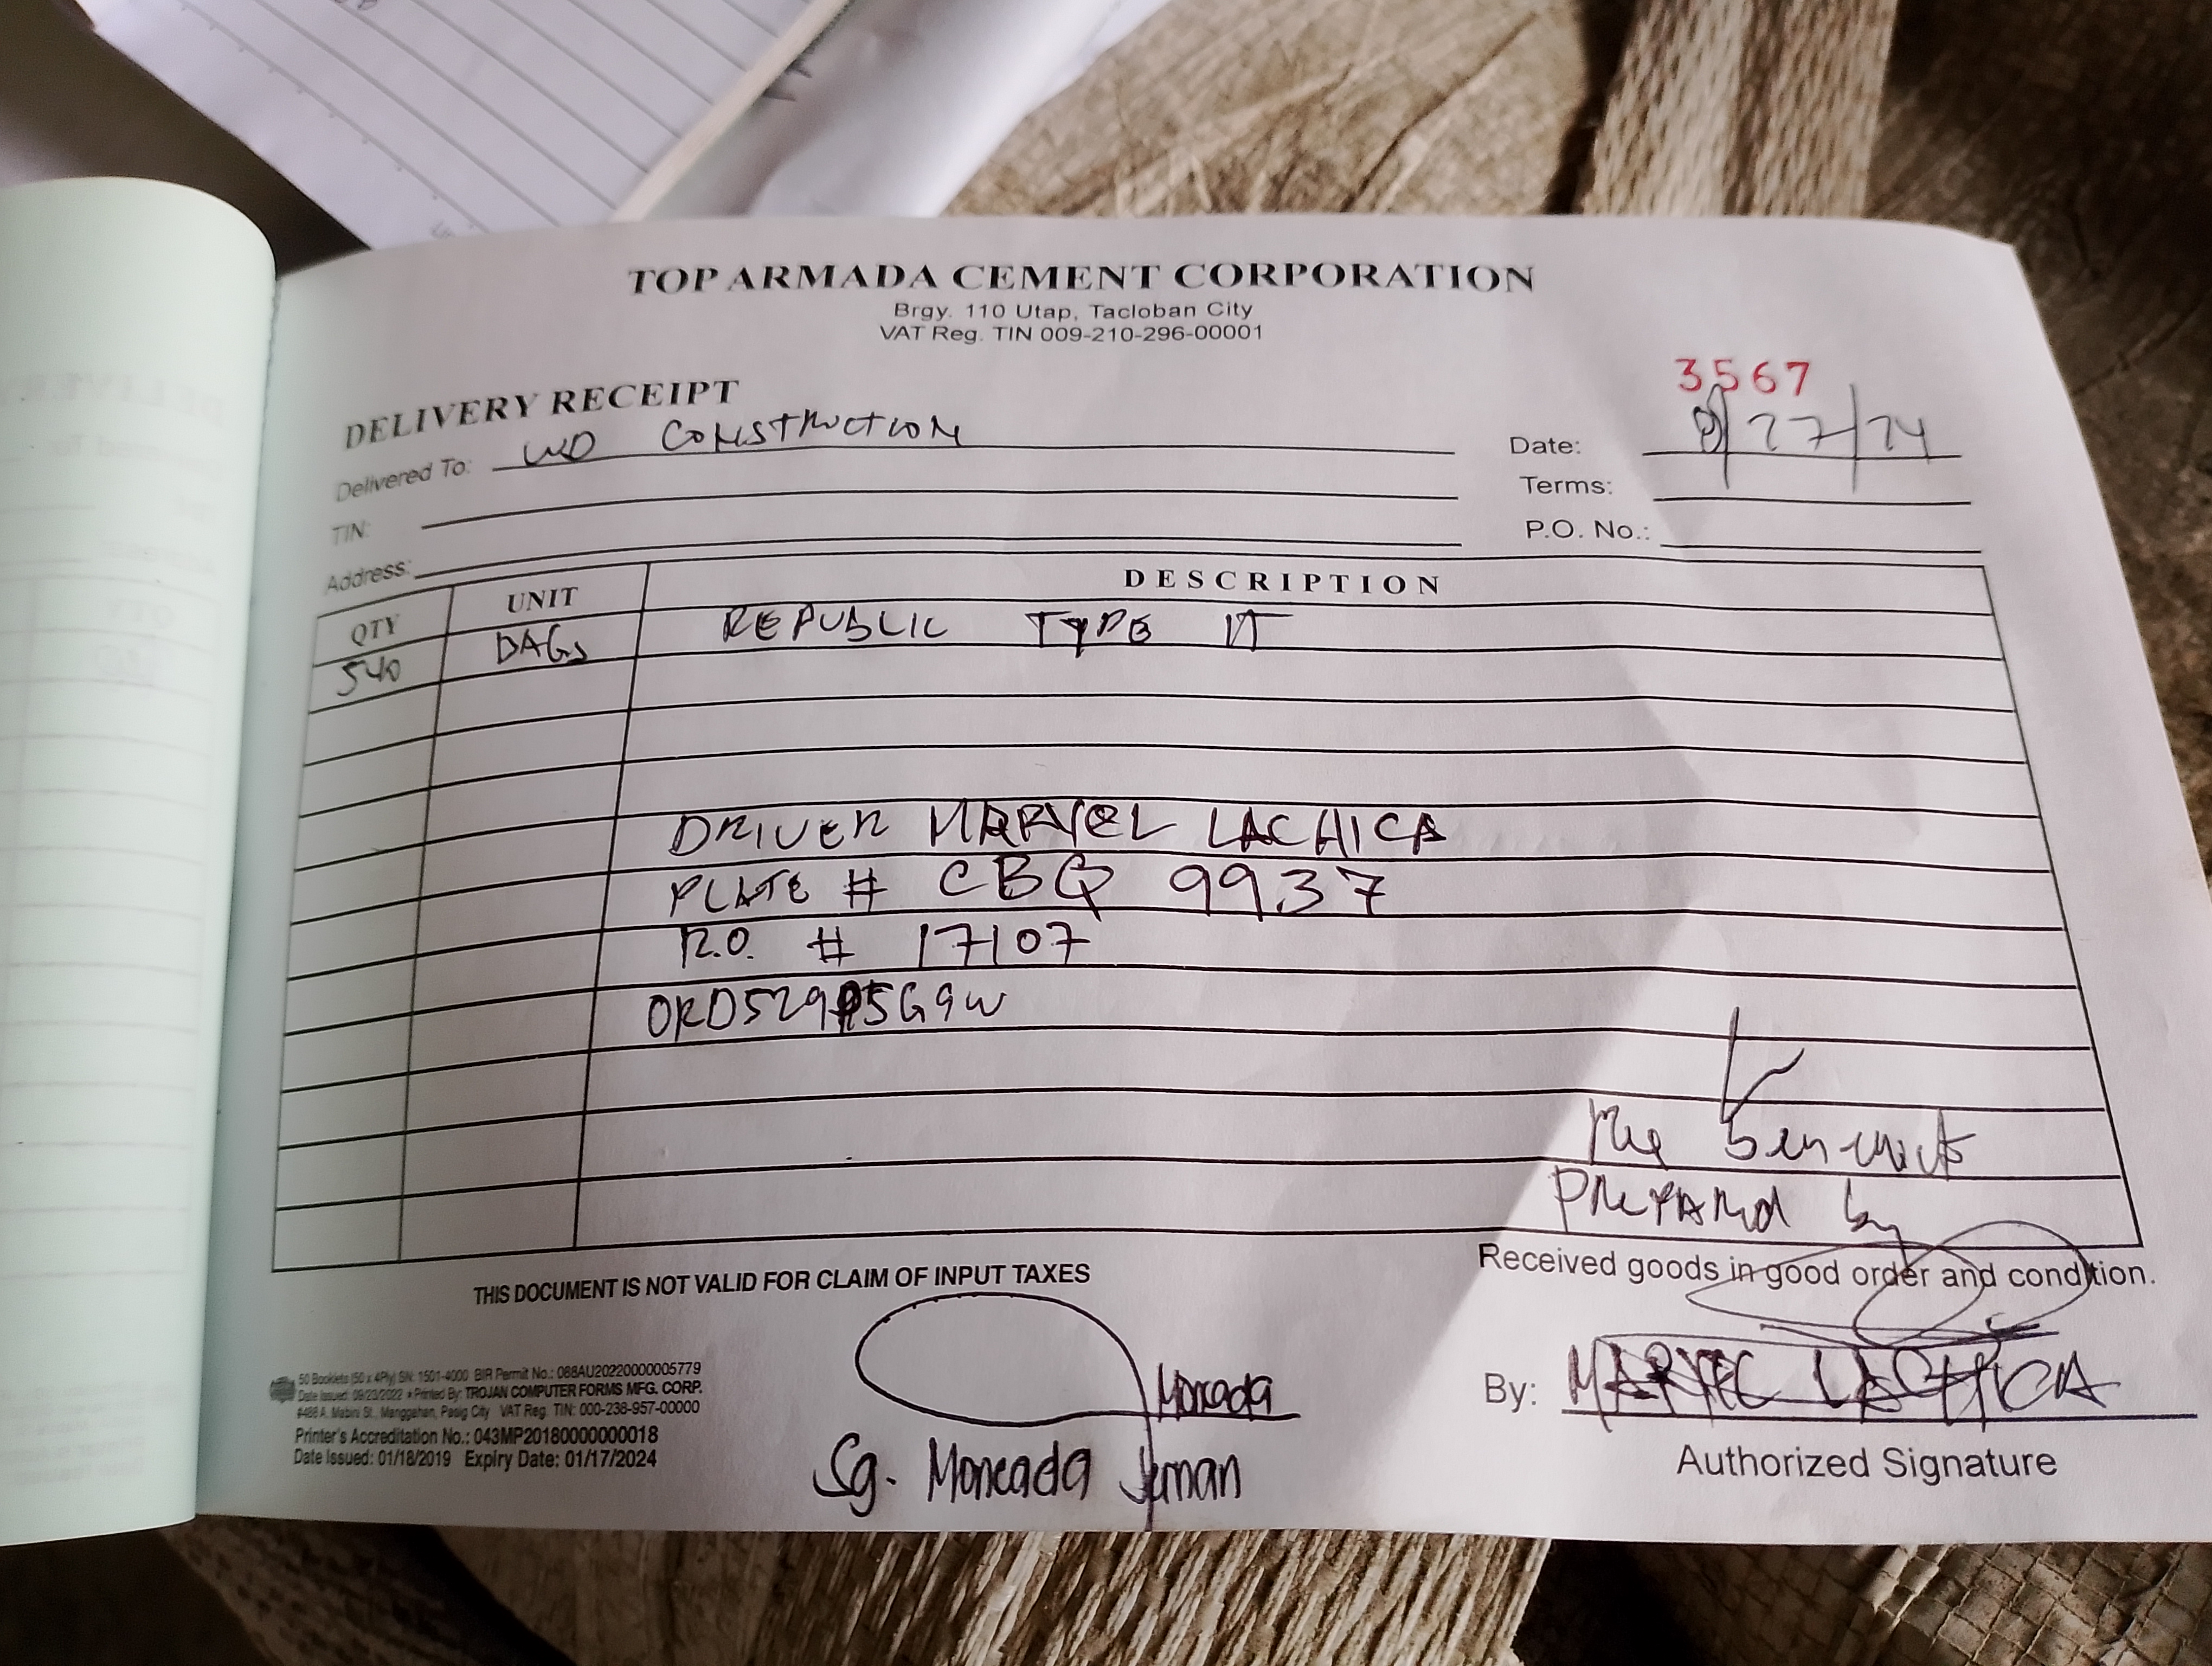 TOP ARMADA CEMENT CORPORATION
Brgy. 110 Utap, Tacloban City
VAT Reg. TIN 009-210-296-00001
3567
DELIVERY RECEIPT
Delivered To: WD CONSTRUCTION
Date: /27/24
TIN:
Terms:
Address:
P.O. No.:
QTY UNIT DESCRIPTION
540 BAGS REPUBLIC TYPE 1T
DRIVER MARVEL LACHICA
PLATE # CBQ 9937
R.O. # 17107
PREPARED by
THIS DOCUMENT IS NOT VALID FOR CLAIM OF INPUT TAXES
Received goods in good order and condition.
50 Booklets (50 x 4Ply) SN: 1501-4000 BIR Permit No.: 088AU20220000005779
Date Issued: 09/23/2022 • Printed By: TROJAN COMPUTER FORMS MFG. CORP.
#488 A. Mabini St., Manggahan, Pasig City VAT Reg. TIN: 000-238-957-00000
Printer's Accreditation No.: 043MP20180000000018
Date Issued: 01/18/2019 Expiry Date: 01/17/2024
Moncada
Sg. Moncada Jeman
By: MARVEL LACHICA
Authorized Signature